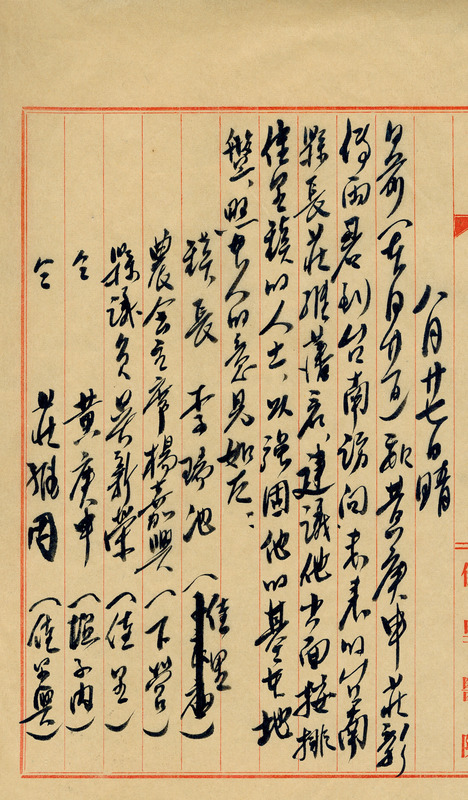 八月廿七日晴
日前(本月廿五)和黃庚申莊彩
兩君到台南訪问未來的台南
縣長莊維藩君、建議他出面按排
佳里鎮的人士、以强固他的基本地
盤、照本人的意見如左：
鎮長 李瑞池 (佳里)
農会主席楊嘉興 (下營)
縣議員吳新榮 (佳里)
仝 黃庚申 (塭子内)
仝 莊維周 (佳里興)
佳里醫院